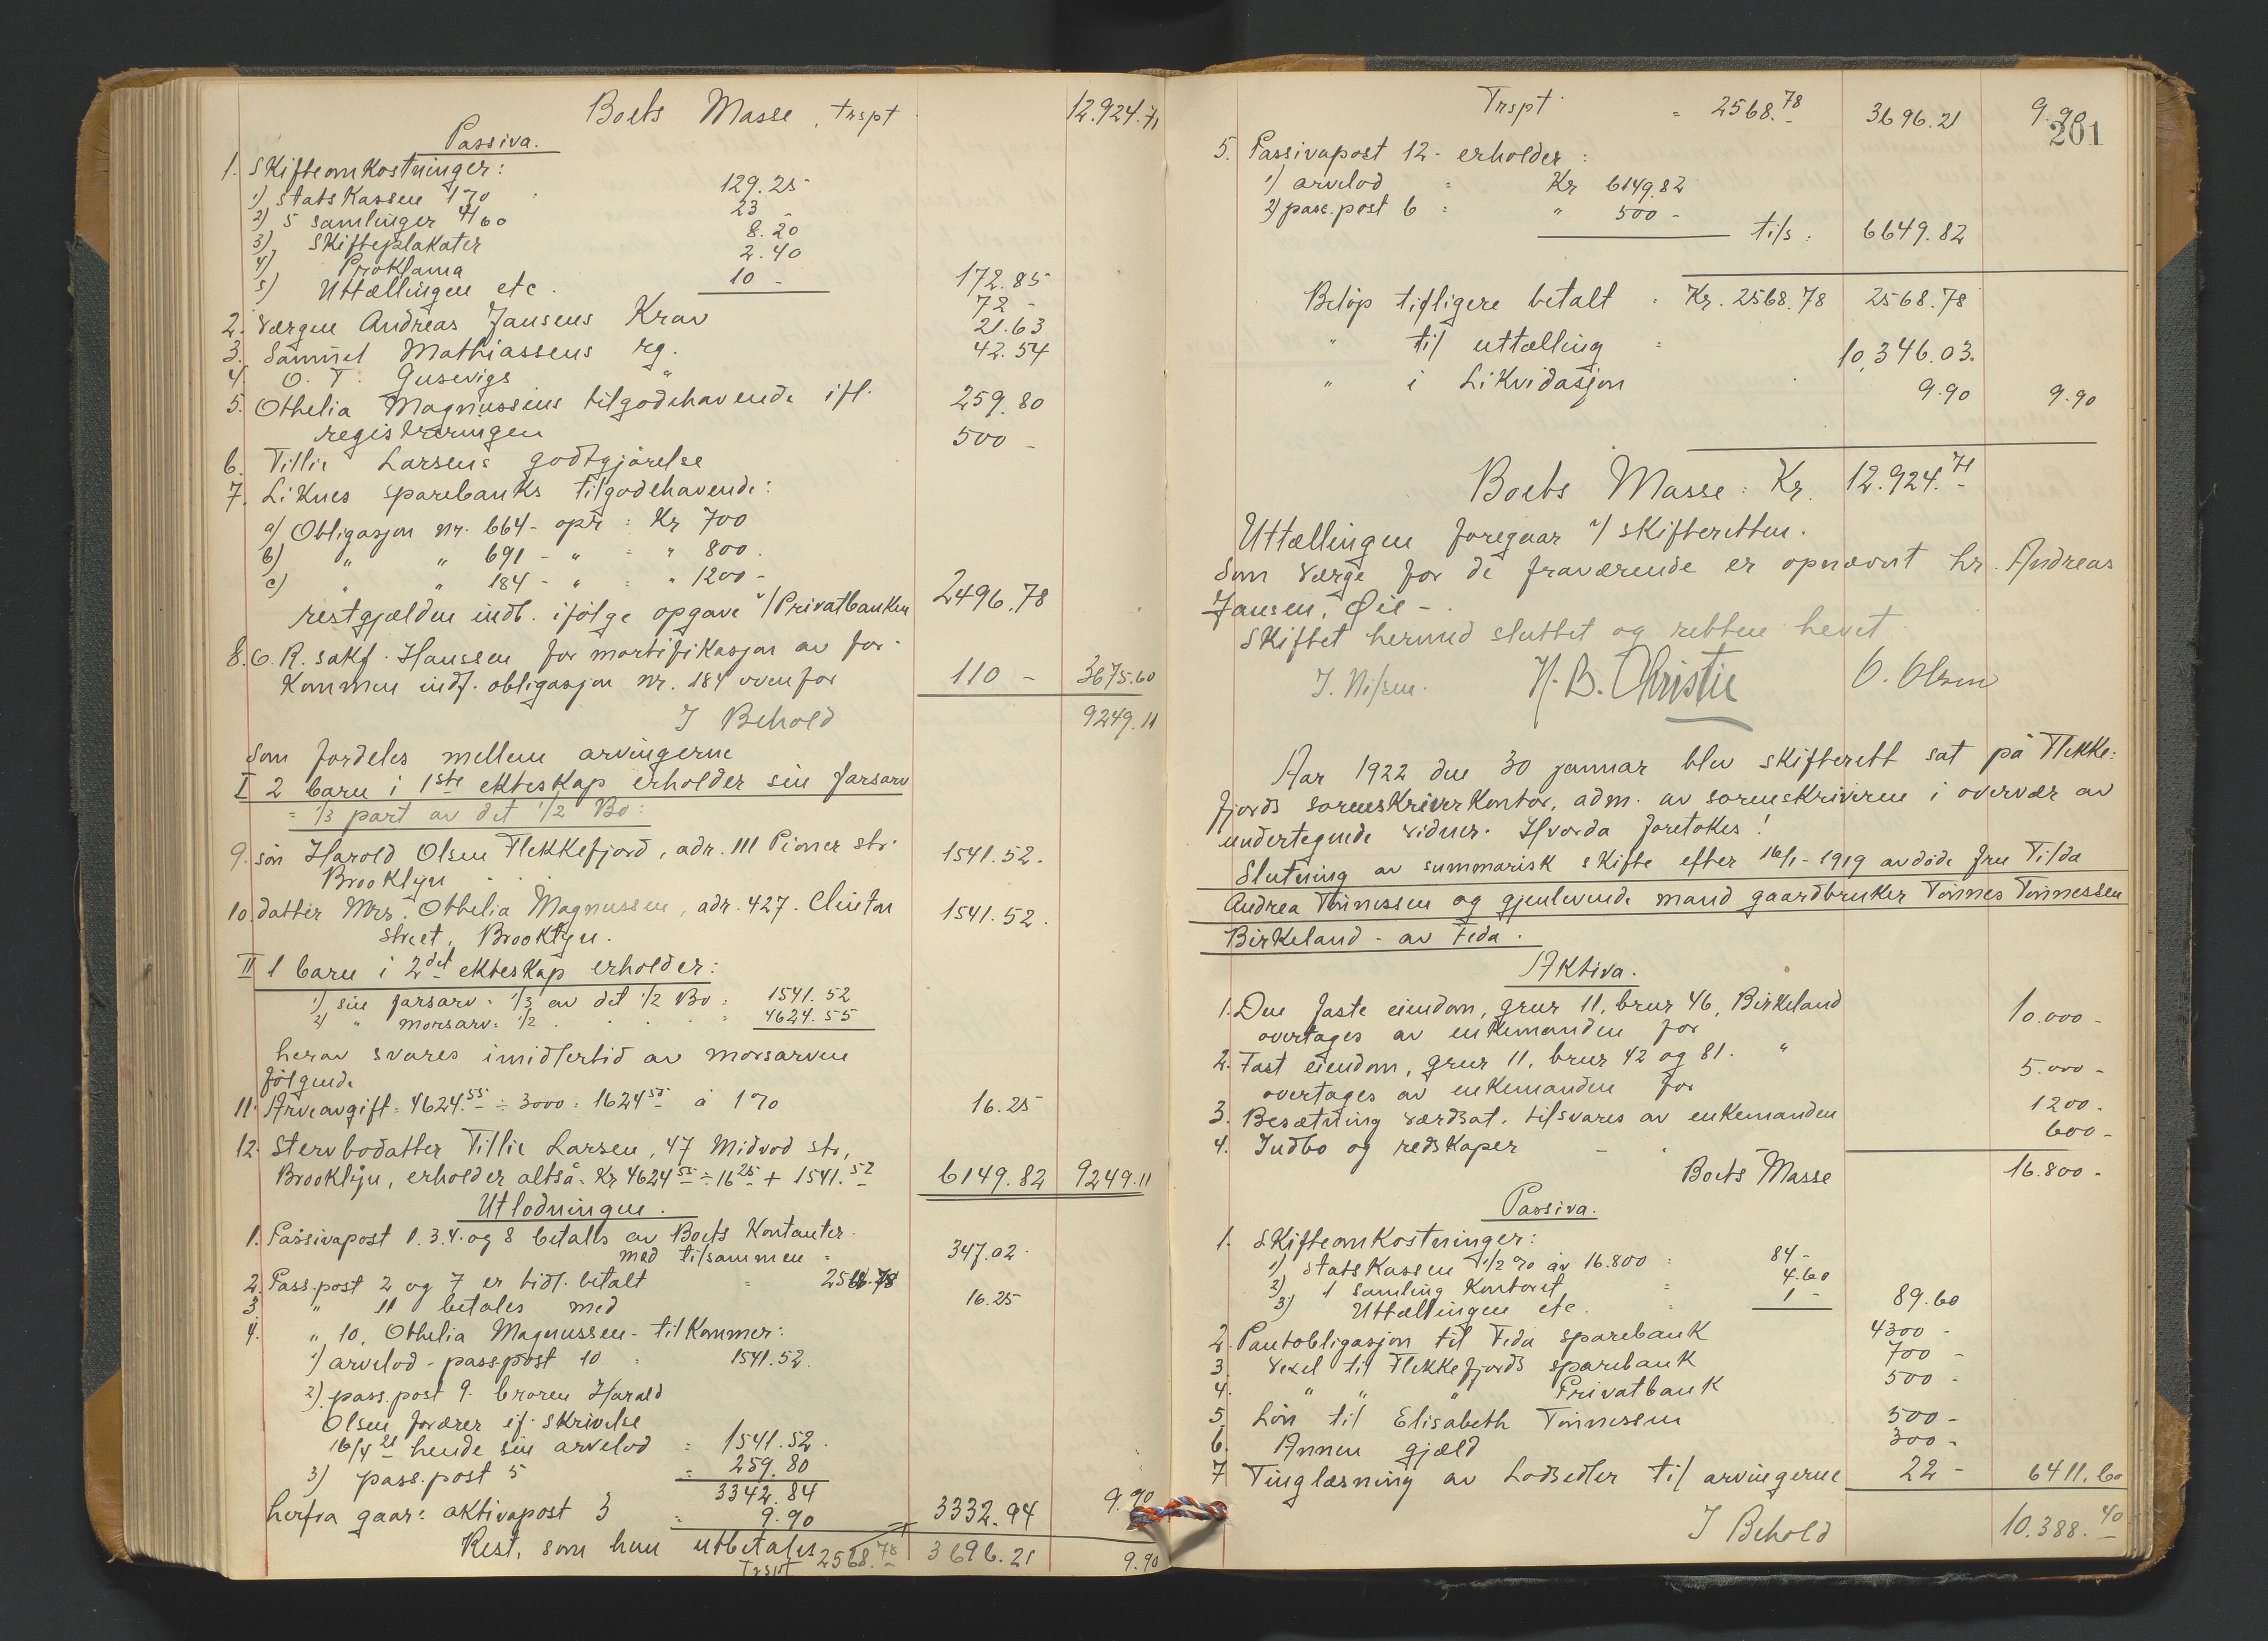 Boets Masse, trspt 12.924.71
Passiva.
1. Skifteomkostninger:
1) Statskassen 1% 129.25
2) 5 samlinger 4/60 23 -
3) Skifteplakater 8.20
4) Proklama 2.40
5) Uttællingen etc. 10 - 172.85
2. Værgen Andreas Jansens Krav 72 -
3. Samuel Mathiassens rg. 21.63
4. O. T. Gusevigs " 42.54
5. Othelia Magnussens tilgodehavende ifl.
registreringen 259.80
6. Tillie Larsens godtgjørelse 500 -
7. Liknes sparebanks tilgodehavende:
a) Obligasjon nr. 664 - opr: Kr 700
b) " " 691 - " = " 800.
c) " " 184 - " : " 1200 -
restgjælden indb. ifølge opgave v/Privatbanken 2496.78
8. O. R. sakf. Hanssen for mortifikasjon av for-
kommen indf. obligasjon nr. 184 ovenfor 110 - 3675.60
I Behold 9249.11
Som fordeles mellem arvingerne
I 2 barn i 1ste ekteskap erholder sin farsarv
= 1/3 part av det 1/2 Bo:
9. søn Harold Olsen Flekkefjord, adr. 111 Pioner str.
Brooklyn 1541.52.
10. datter Mrs. Othelia Magnussen, adr. 427. Clinton
street, Brooklyn. 1541.52.
II 1 barn i 2det ekteskap erholder:
1) sin farsarv = 1/3 av det 1/2 Bo = 1541.52
2) " morsarv = 1/2 = 4624.55
herav svares imidlertid av morsarven
følgende
11. Arveavgift = 4624.55 ÷ 3000 = 1624 55 à 1% 16.25
12. Stervbodatter Tillie Larsen, 47 Midvod str,
Brooklyn, erholder altså: Kr 4624 55 ÷ 16 25 + 1541.52 6149.82 9249.11
Utlodningen.
1. Passivapost 1. 3. 4. og 8 betales av Boets Kontanter
med tilsammen = 347.02.
2. Pass.post 2 og 7 er tidl. betalt = 2568.78
3. " 11 betales med 16.25
4. " 10. Othelia Magnussen - tilkommer:
1) arvelod - pass.post 10 = 1541.52.
2) pass.post 9. broren Harald
Olsen forærer if. skrivelse
16/4 21 hende sin arvelod = 1541.52.
3) pass.post 5 = 259.80
3342.84
herfra gaar: aktivapost 3 = 9.90 9.90
Rest, som hun utbetales = 3332.94
Trspt 2568.78 3696.21 9.90
Trspt = 2568.78 3696.21 9.90
201
5. Passivapost 12 - erholder:
1) arvelod = Kr 6149.82
2) pass.post 6 = " 500 -
til s: 6649.82
Beløp tidligere betalt : Kr. 2568.78 2568.78
" til uttælling = 10,346.03.
" i Likvidasjon 9.90 9.90
Boets Masse: Kr. 12.924.71
Uttællingen foregaar v/ skifteretten.
Som værge for de fraværende er opnævnt hr. Andreas
Jansen, Øie -.
Skiftet hermed sluttet og retten hevet
J. Nilsen. H. B. Christie O. Olsen
Aar 1922 den 30 januar blev skifterett sat på Flekke-
fjords sorenskriverkontor, adm. av sorenskriveren i overvær av
undertegnede vidner. Hvorda foretokes!
Slutning av summarisk skifte efter 16/1 - 1919 avdøde fru Tilda
Andrea Tønnessen og gjenlevende mand gaardbruker Tønnes Tønnessen
Birkeland - av Feda.
Aktiva.
1. Den faste eiendom, gnr 11, bnr 46, Birkeland
overtages av enkemanden for 10.000 -
2. Fast eiendom, gnr 11, bnr 42 og 81. "
overtages av enkemanden for 5.000 -
3. Besætning værdsat. tilsvares av enkemanden 1200.
4. Indbo og redskaper - " - 600 -
Boets Masse 16.800 -
Passiva.
1. Skifteomkostninger:
1) Statskassen 1/2 % av 16.800 : 84 -
2) 1 samling Kontoret = 4.60
3) Uttællingen etc. : 1 - 89.60
2. Pantobligasjon til Feda sparebank 4300 -
3. Vexel til Flekkefjords sparebank 700 -
4. " " " Privatbank 500 -
5. Løn til Elisabeth Tønnessen 500 -
6. Annen gjæld 300 -
7 Tinglæsning av Lodsedler til arvingerne 22 - 6411.60
I Behold 10.388.40